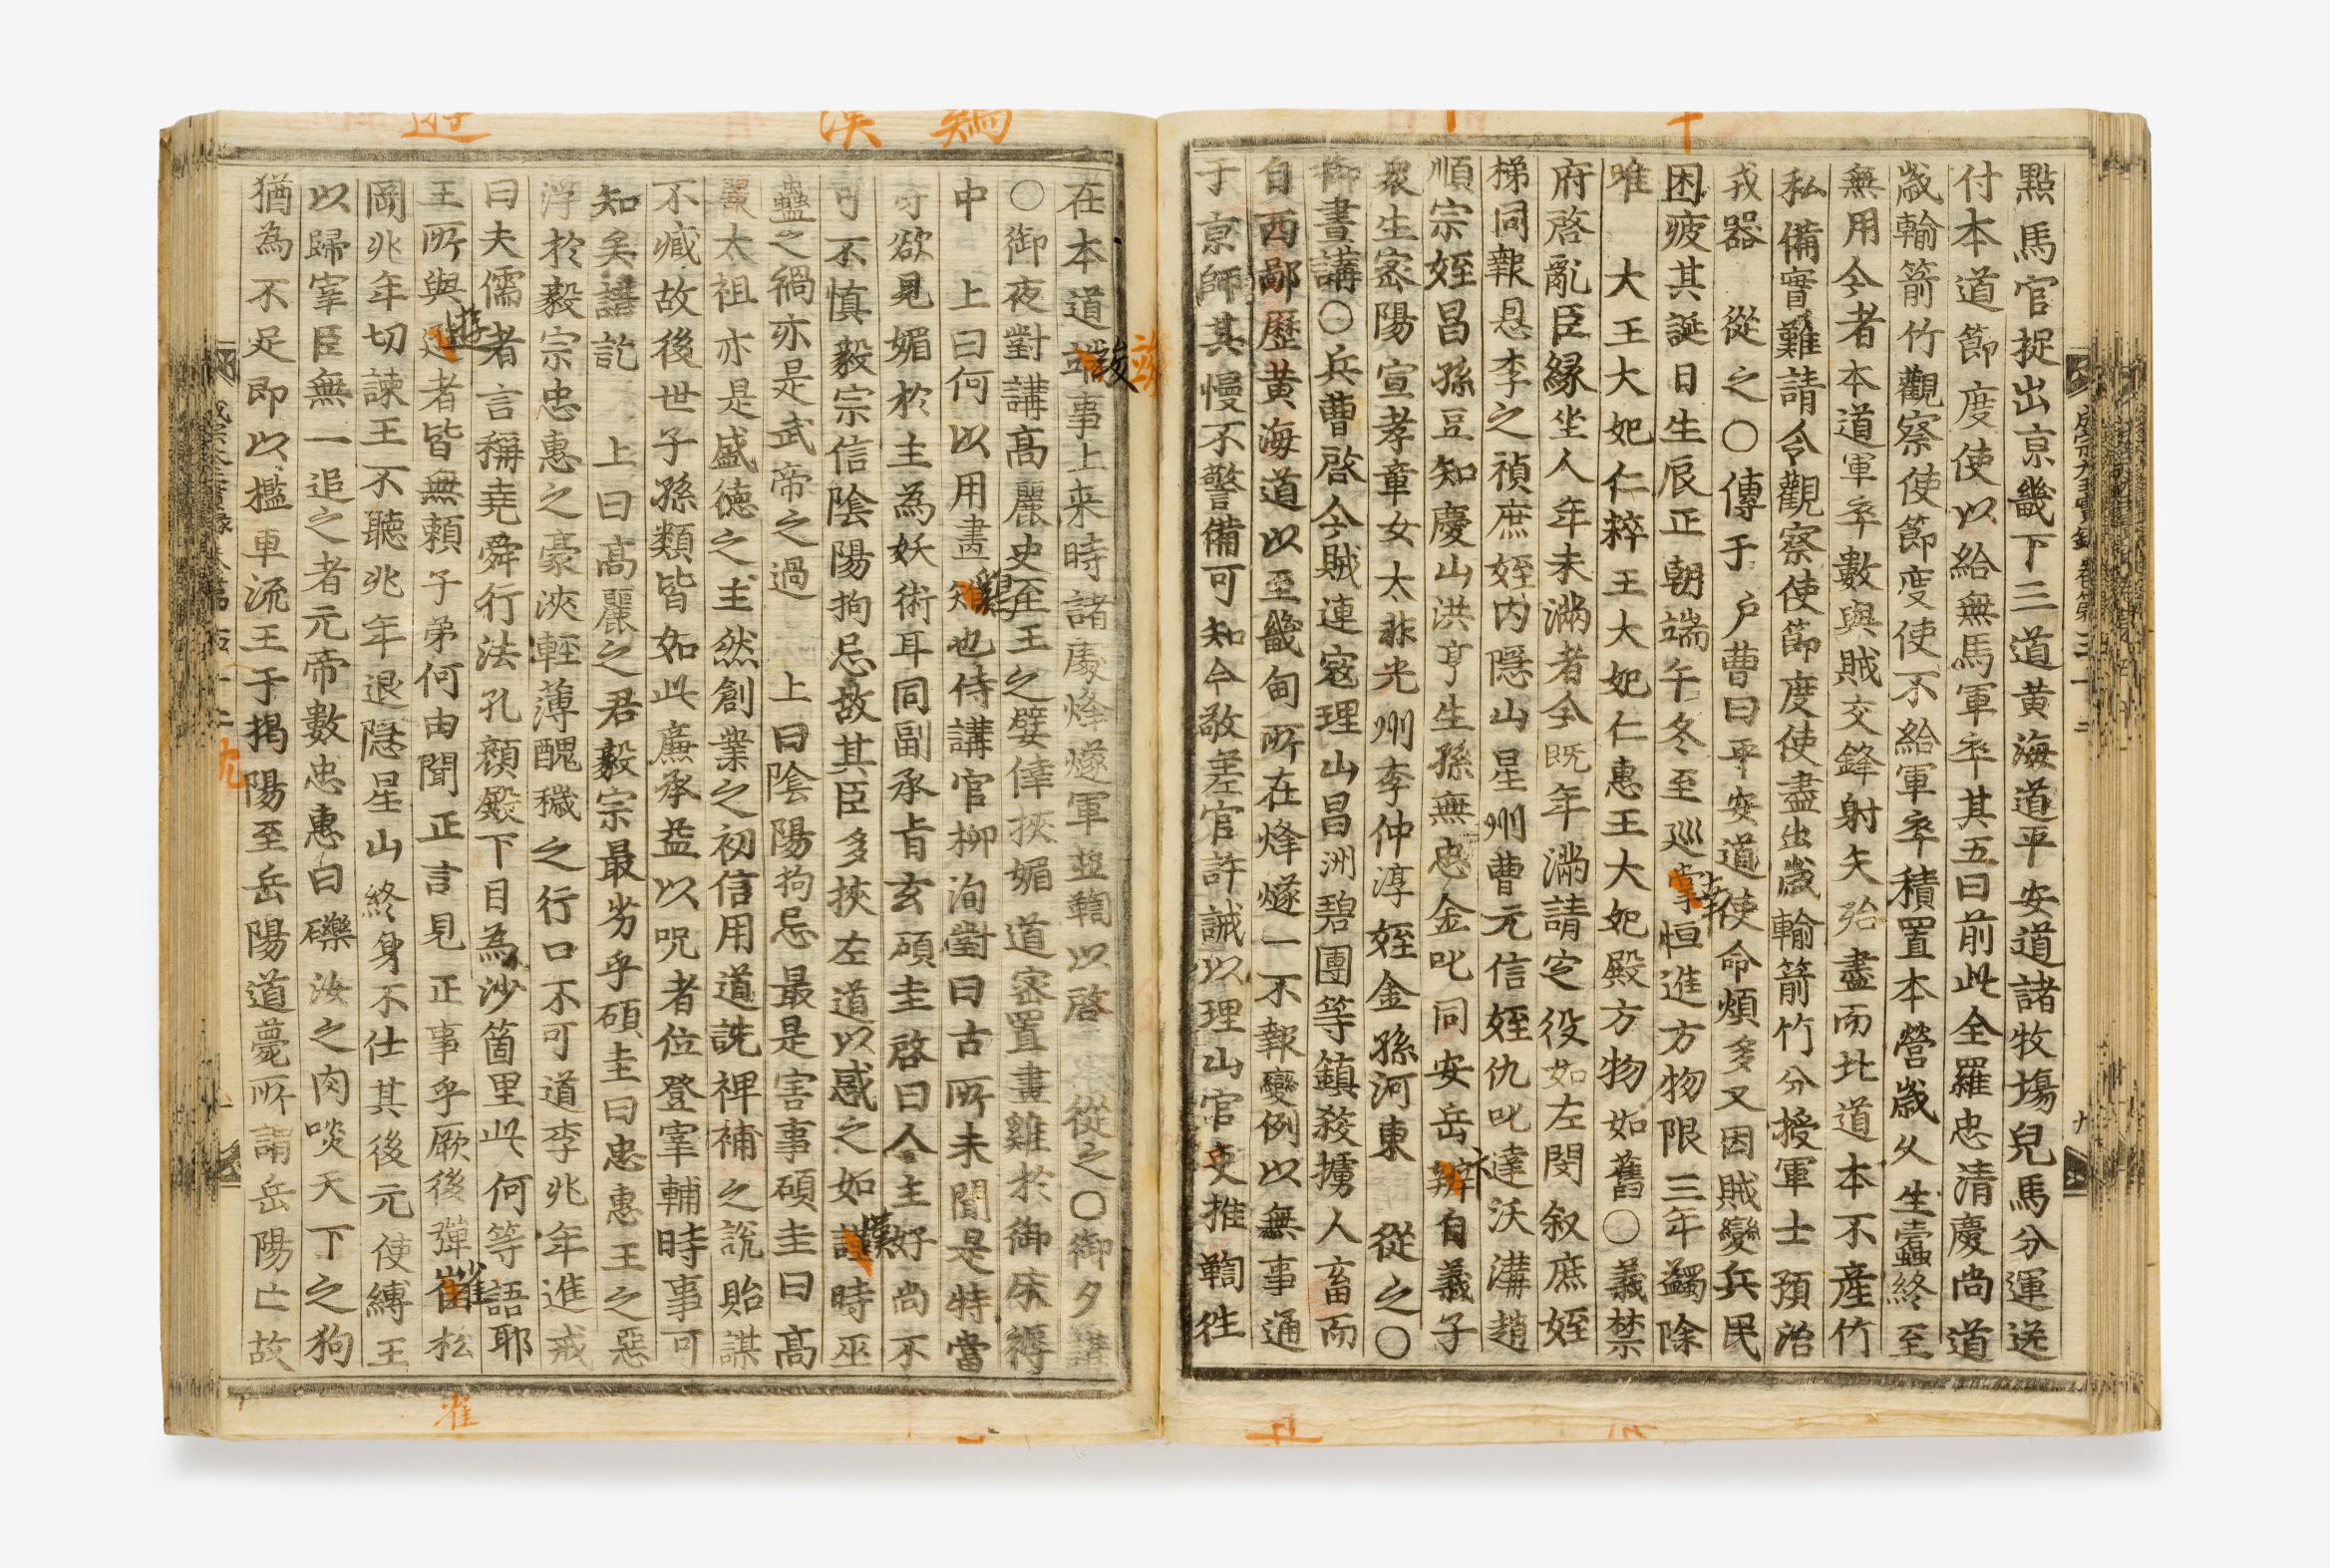 點馬官捉出京畿下三道黃海道平安道諸牧塲兒馬分運送
付本道節度使以給無馬軍卒其五曰前此全羅忠淸慶尙道
歲輸箭竹觀察使節度使不給軍卒積置本營歲久生蠧終至
無用今者本道軍卒數與賊交鋒射矢殆盡而北道本不産竹
私備實難請令觀察使節度使盡出歲輸箭竹分授軍士預治
戎器 從之〇傳于戶曹曰平安道使命煩多又因賊變兵民
困疲其誕日生辰正朝端午冬至巡恒進方物限三年蠲除
唯 大王大妃仁粹王大妃仁惠王大妃殿方物如舊〇義禁
府啓亂臣緣坐人年未滿者今旣年滿請定役如左閔叙庶姪
梯同報恩李之禎庶姪內隱山星州曹元信姪仇叱達沃溝趙
順宗姪昌孫豆知慶山洪亨生孫無忠金叱同安岳自義子
衆生密陽宣孝童女太非光州李仲淳姪金孫河東 從之〇
御晝講〇兵曹啓今賊連寇理山昌洲碧團等鎭殺擄人畜而
自西鄙歷黃海道以至畿甸所在烽燧一不報變例以無事通
于京師其慢不警備可知今敬差官許諴以理山官吏推鞫徃
在本道事上來時諸處烽燧軍並鞫以啓 從之〇御夕講
〇御夜對講高麗史至王之嬖倖挾媚道密置畫雞於御床褥
中 上曰何以用畫雞也侍講官柳洵對曰古所未聞是特當
時欲見媚於主爲妖術耳同副承旨玄碩圭啓曰人主好尙不
可不愼毅宗信陰陽拘忌故其臣多挾左道以惑之如漢時巫
蠱之禍亦是武帝之過 上曰陰陽拘忌最是害事碩圭曰高
麗太祖亦是盛德之主然創業之初信用道詵裨補之說貽謀
不臧故後世子孫類皆如此廉承益以呪者位登宰輔時事可
知矣講訖 上曰高麗之君毅宗最劣乎碩圭曰忠惠王之惡
浮於毅宗忠惠之豪浹輕薄醜穢之行口不可道李兆年進戒
曰夫儒者言稱堯舜行法孔顔殿下目爲沙箇里此何等語耶
王所與遊者皆無賴子弟何由聞正言見正事乎厥後彈雀松
岡兆年切諫王不聽兆年退隱星山終身不仕其後元使縛王
以歸宰臣無一追之者元帝數忠惠曰磔汝之肉啖天下之狗
猶爲不足卽以檻車流王于揭陽至岳陽道薨所謂岳陽亡故